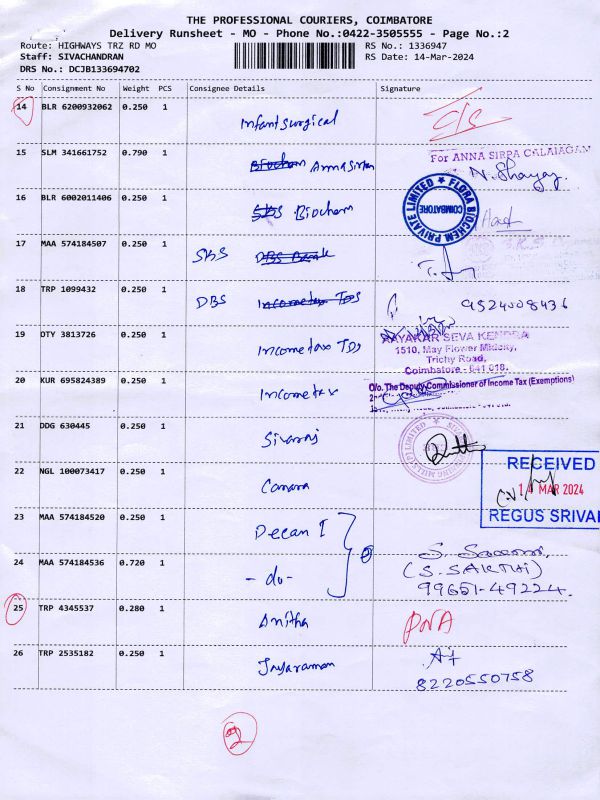 THE PROFESSIONAL COURIERS, COIMBATORE
Delivery Runsheet - MO - Phone No.:0422-3505555 - Page No.:2
Route: HIGHWAYS TRZ RD MO
RS No.: 1336947
Staff: SIVACHANDRAN
RS Date: 14-Mar-2024
DRS No.: DCJB133694702
S No Consignment No Weight PCS Consignee Details Signature
14 BLR 6200932062 0.250 1 Infant surgical C/S
15 SLM 341661752 0.790 1 Biochem Annasirpa For ANNA SIRPA CALAIAGAN
16 BLR 6002011406 0.250 1 SBS Biochem FLORA BIOCHEM PRIVATE LIMITED COIMBATORE
17 MAA 574184507 0.250 1 SBS DBS Bank
18 TRP 1099432 0.250 1 DBS Incometax TDS 9524008436
19 DTY 3813726 0.250 1 Incometax TDS AAYAKAR SEVA KENDRA
1510, May Flower Midcity,
Trichy Road,
Coimbatore - 641 018.
20 KUR 695824389 0.250 1 Incometax O/o. The Deputy Commissioner of Income Tax (Exemptions)
21 DDG 630445 0.250 1 Sivaraj
22 NGL 100073417 0.250 1 Camara RECEIVED
14 MAR 2024
REGUS SRIVA
23 MAA 574184520 0.250 1 Decan I
24 MAA 574184536 0.720 1 - do - (S. SAKTHI)
99651-49224.
25 TRP 4345537 0.280 1 Anitha PNA
26 TRP 2535182 0.250 1 Jayaraman
8220550758
2